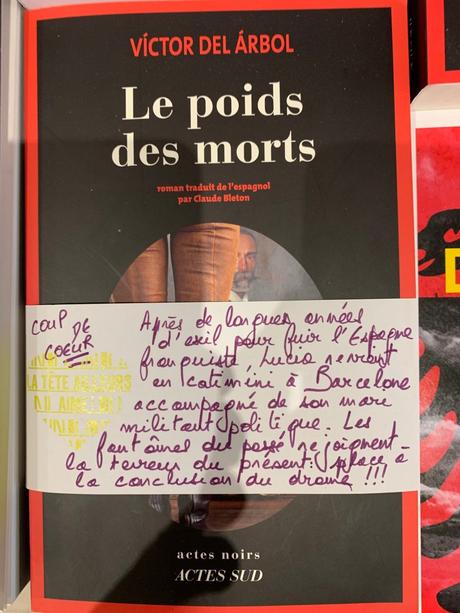 VÍCTOR DEL ÁRBOL
Le poids
des morts
roman traduit de l'espagnol
par Claude Bleton
COUP DE
COEUR
Après de longues années
d'exil pour fuir l'Espagne
franquiste, Lucia revient
en catimini à Barcelone
accompagné de son mari
militant politique. Les
fantômes du passé rejoignent
la terreur du présent : place à
la conclusion du drame !!!
LA TÊTE AILLEURS
actes noirs
ACTES SUD